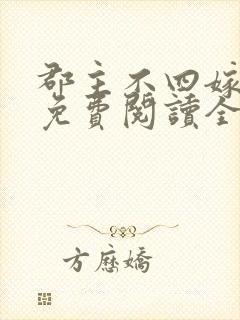 郡主不四嫁
免費閱讀全
方應嬌